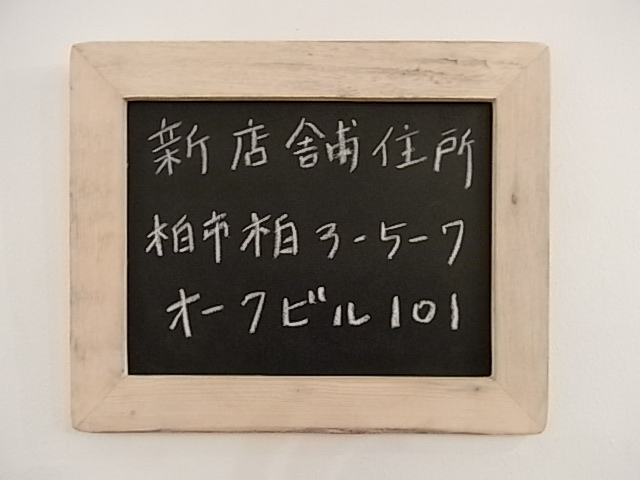 新店舗住所
柏市柏3-5-7
オークビル101